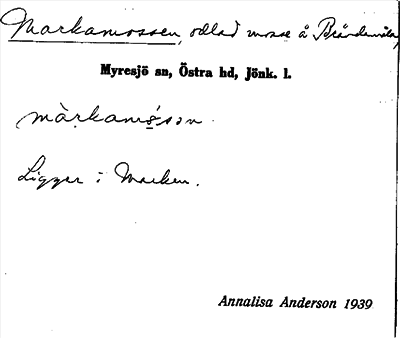 Markamossen, odlad mosse å Brändemåla,
Myresjö sn, Östra hd, Jönk. l.
màrkamósən.
Ligger i Marken.
Annalisa Anderson 1939